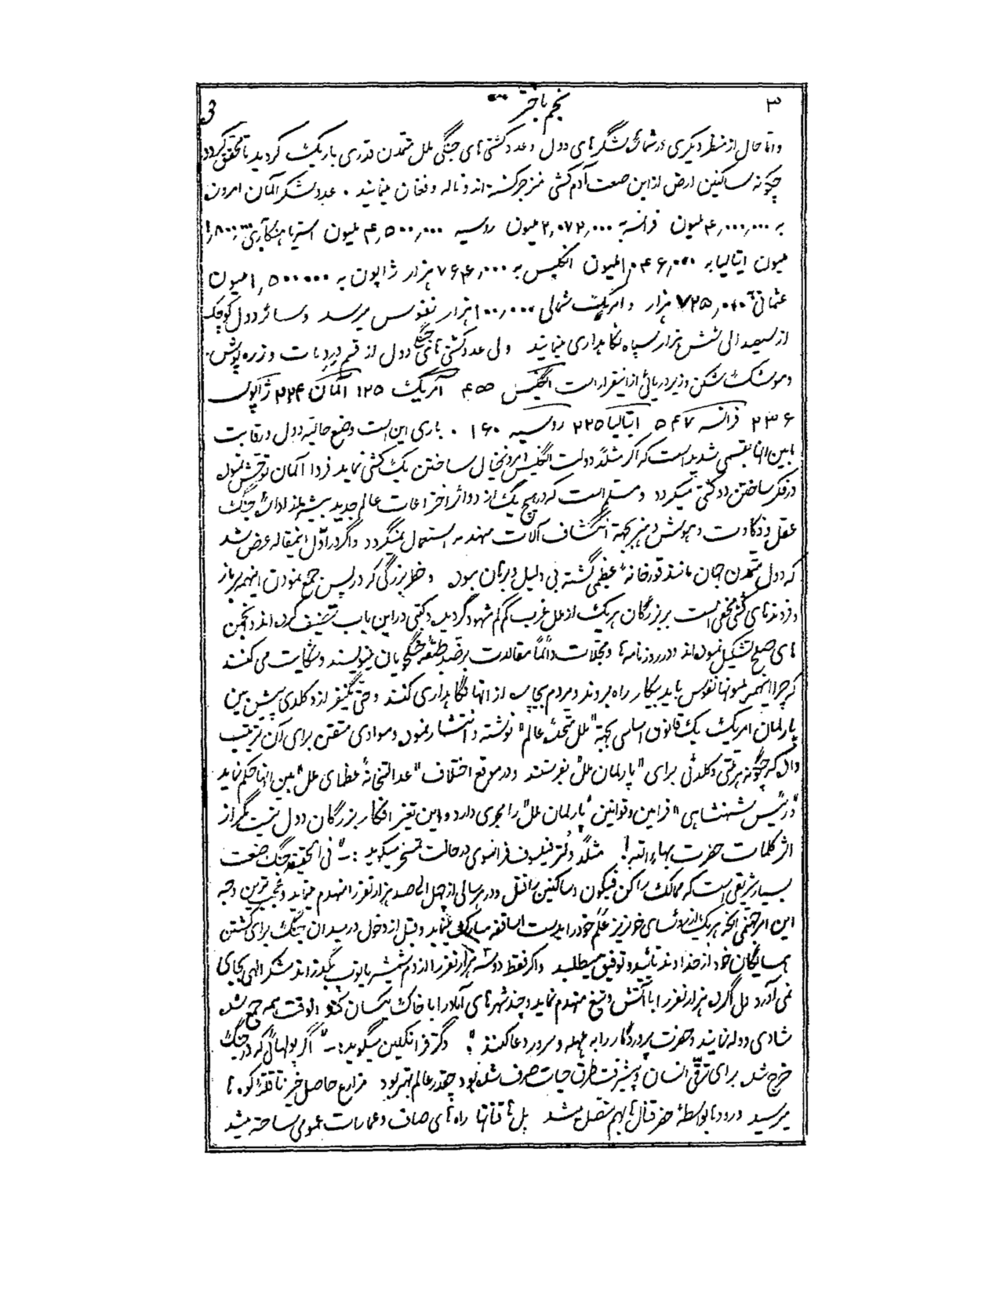 ۳ نجم باختر 3
و اما حال از منظر دیگری در شماره لشگرهای دول و عدد کشتی های جنگی ملل متمدن قدری باریک گردید تا محقق گردد
چگونه ساکنین ارض از این صنعت آدم کشی منزجر گشته اند و ناله و فغان مینمایند . عدد لشکر آلمان امروز
به ۴٬۰۰۰٬۰۰۰ ملیون فرانسه به ۲٬۰۷۲٬۰۰۰ میون روسیه ۴٬۵۰۰٬۰۰۰ ملیون استریا هنگاری
میون ایتالیا به ملیون انگلیس به ۷۶۴٬۰۰۰ هزار ژاپون به ۱٬۵۰۰۰۰۰ میون
عثمانی ۷۲۵٬۰۰۰ هزار و امریک شمالی ۱۰۰٬۰۰۰ هزار نفوس میرسد و سائر دول کوچک
از سیصد الی شش هزار سپاه نگاهداری مینمایند ولی عدد کشتی های جنگی دول از قسم و زره پوش
و موشک شکن و زیر دریائی از اینقرار است انگلیس آمریک ۱۲۵ آلمان ۲۲۴ ژاپون
۲۳۶ فرانسه ۵۴۷ ایتالیا ۲۲۵ روسیه ۱۶۰ . باری این است وضع حالیه دول و رقابت
مابین انها بقسمی شدید است که اگر مثلاً دولت انگلیس امروز بخیال ساختن یک کشتی نماید فردا آلمان
در فکر ساختن دو کشتی میگردد و مسلم است که در هیچ یک از دوائر اختراعات عالم جدید بیشتر از ادارات جنگ
عقل و ذکاوت و هوش و هنر بجهة انکشاف آلات مهندسه استعمال نمیگردد و اگر در اول اینمقاله عرض شد
که دول متمدن جهان مانند قورخانه عظمی گشته بی دلیل و برهان نبود و خطر بزرگی که در پس جمع نمودن اینهمه
مخفی است بر بزرگان هریک از ملل غرب کم کم مشهود گردیده و کتبی در این باب تصنیف کرده اند و انجمن
های صلح تشکیل نموده اند و در روزنامه ها و مجلات دائماً مقالات بر ضد جنگجویان مینویسند و شکایت می کنند
که چرا اینهمه ملیونها نفوس باید بیکار راه بروند و مردم بیچاره از انها نگاهداری کنند و حتی یکنفر از وکلای پیش بین
پارلمان امریک یک قانون اساسی بجهة "ملل متحده عالم" نوشته و انتشار نموده و موادی متقن برای آن ترتیب
داده که چگونه هر ملتی وکلائی برای "پارلمان ملل" بفرستند و در موقع اختلاف "عدالتخانه عظمای ملل" بین انها حکم نماید
"و رئیس شهنشاهی" فرامین و قوانین "پارلمان ملل" را مجری دارد و این تغیر افکار بزرگان دول نیست مگر از
اثر کلمات حضرت بهاءالله! مثلاً ولتر فیلسوف فرانسوی در حالت تمسخر میگوید :- "فی الحقیقه جنگ صنعت
بسیار شریفی است که ممالک را کن فیکون و ساکنین را قتل و در هر سالی از چهل الی صد هزار نفر را منهدم مینماید و عجب ترین وجه
این امر جهنمی آنکه هر یک از رؤسای خونریز علم خود را بدست اساقفه مبارک مینماید و قبل از دخول در میدان جنگ برای کشتن
همسایگان خود از خداوند تائید و توفیق میطلبد و اگر فقط دو سه هزار نفر را از دم شمشیر یا توپ بگذراند شکر الهی بجای
نمی آورد ولی اگر ده هزار نفر را با آتش و تیغ منهدم نماید و چند شهرهای آباد را با خاک یکسان کند انوقت همه جمع شده
شادی و وله نمایند و حضرت پروردگار را به هلهله و سرور دعا کنند". دکتر فرانکلین میگوید :- "اگر پولهائی که در جنگ
خرج شد برای ترقی انسان و پیشرفت طرق حیات صرف شده بود چقدر عالم بهتر بود مزارع حاصل خیز تا قلل کوه ها
میرسید و رودها بواسطهٔ حفر قنال بهم متصل میشد پل ها قناتها راه های صاف و عمارات عمومی ساخته میشد